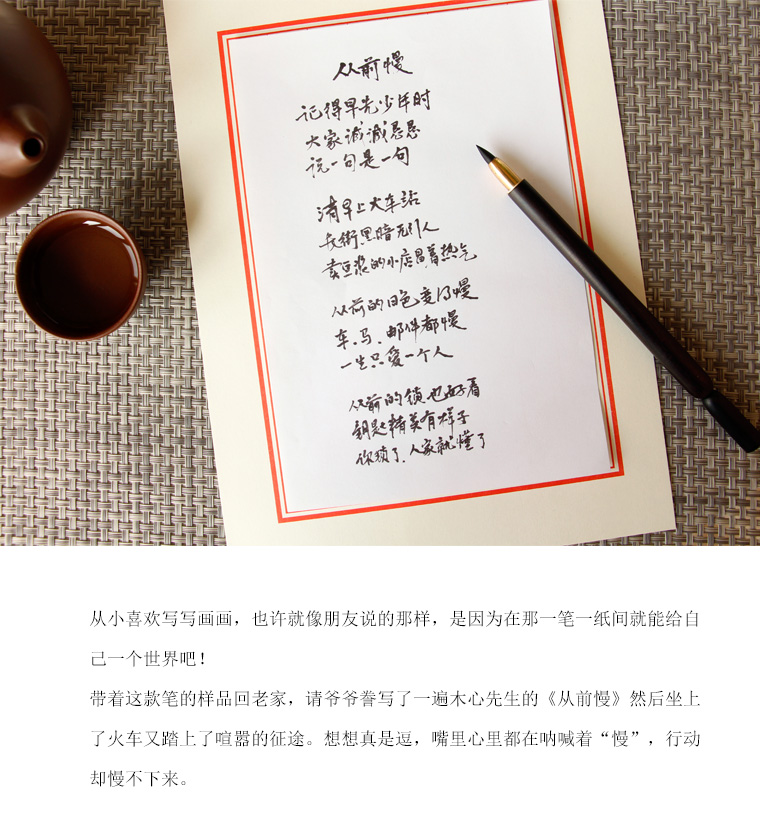 从前慢
记得早先少年时
大家诚诚恳恳
说一句是一句
清早上火车站
长街黑暗无行人
卖豆浆的小店冒着热气
从前的日色变得慢
车、马、邮件都慢
一生只爱一个人
从前的锁也好看
钥匙精美有样子
你锁了、人家就懂了
从小喜欢写写画画，也许就像朋友说的那样，是因为在那一笔一纸间就能给自
己一个世界吧！
带着这款笔的样品回老家，请爷爷誊写了一遍木心先生的《从前慢》然后坐上
了火车又踏上了喧嚣的征途。想想真是逗，嘴里心里都在呐喊着“慢”，行动
却慢不下来。